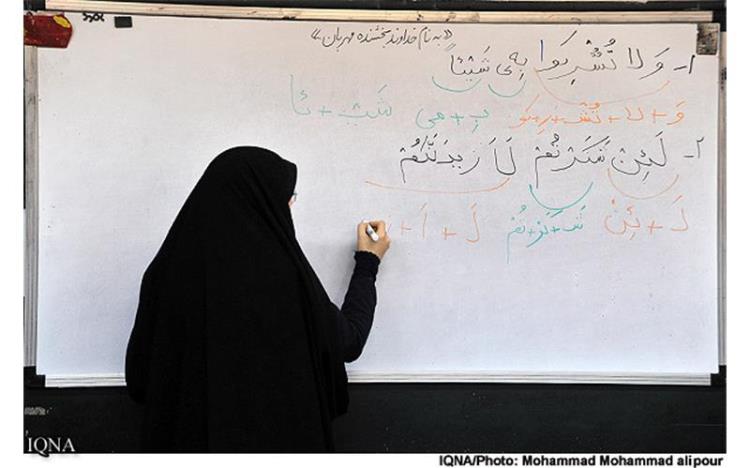 «به نام خداوند بخشنده مهربان»
۱- وَلا تُشْرِکُوا بِهِی شَیْئاً
وَ + لا + تُشْ + رِ + کو بِ + هی شَیْ + ئا
۲- لَئِنْ شَکَرْتُمْ لَأَزیدَنَّکُمْ
لَ + ئِنْ شَ + کَرْ + تُمْ لَ + أَ +
IQNA
IQNA/Photo: Mohammad Mohammad alipour